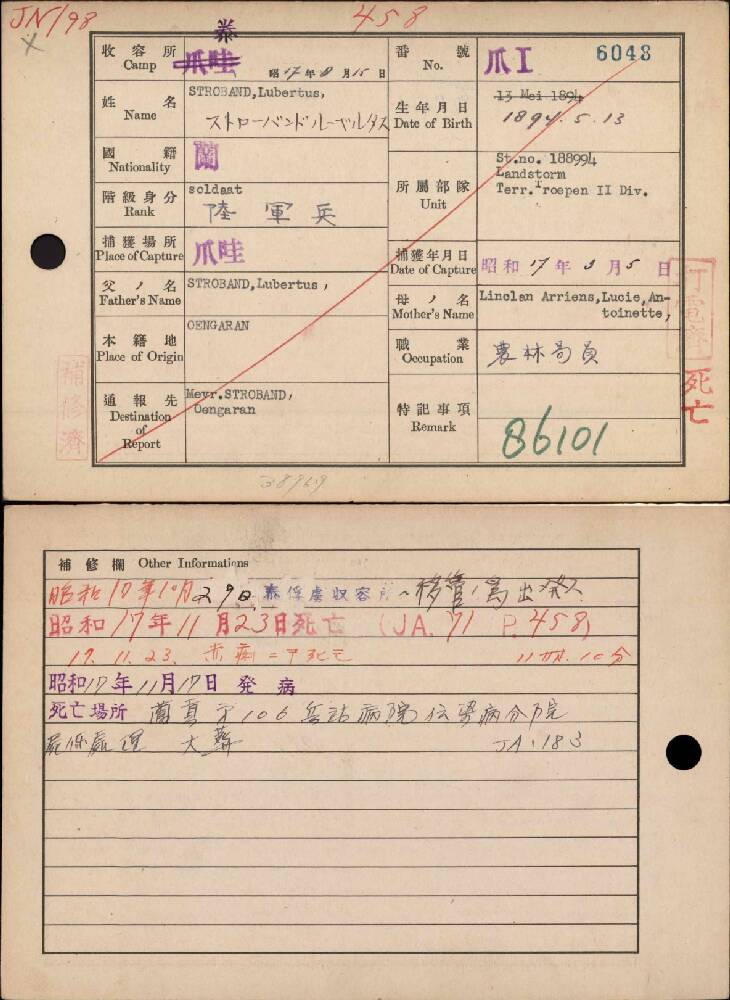 JN/98
458
泰
收容所
Camp
爪哇
昭17年8月15日
番號
No.
爪I 6048
姓名
Name
STROBAND,Lubertus,
ストローバンドルーベルタス
生年月日
Date of Birth
13 Mei 1894
1894.5.13
國籍
Nationality
蘭
階級身分
Rank
soldaat
陸軍兵
所屬部隊
Unit
St.no. 188994
Landstorm
Terr.Troepen II Div.
捕獲場所
Place of Capture
爪哇
捕獲年月日
Date of Capture
昭和17年3月5日
父ノ名
Father's Name
STROBAND,Lubertus,
母ノ名
Mother's Name
Linclan Arriens,Lucie,An-
toinette,
本籍地
Place of Origin
OENGARAN
職業
Occupation
農林局員
通報先
Destination
of
Report
Mevr.STROBAND,
Oengaran
特記事項
Remark
86101
補修濟
死亡
38969
補修欄 Other Informations
昭和17年10月29日 泰俘虜収容所へ移管ノ為出発
昭和17年11月23日死亡 (JA.71 P.458)
17.11.23. 赤痢ニテ死亡
昭和17年11月17日 発病
死亡場所
106兵站病院伝染病分院
JA.183